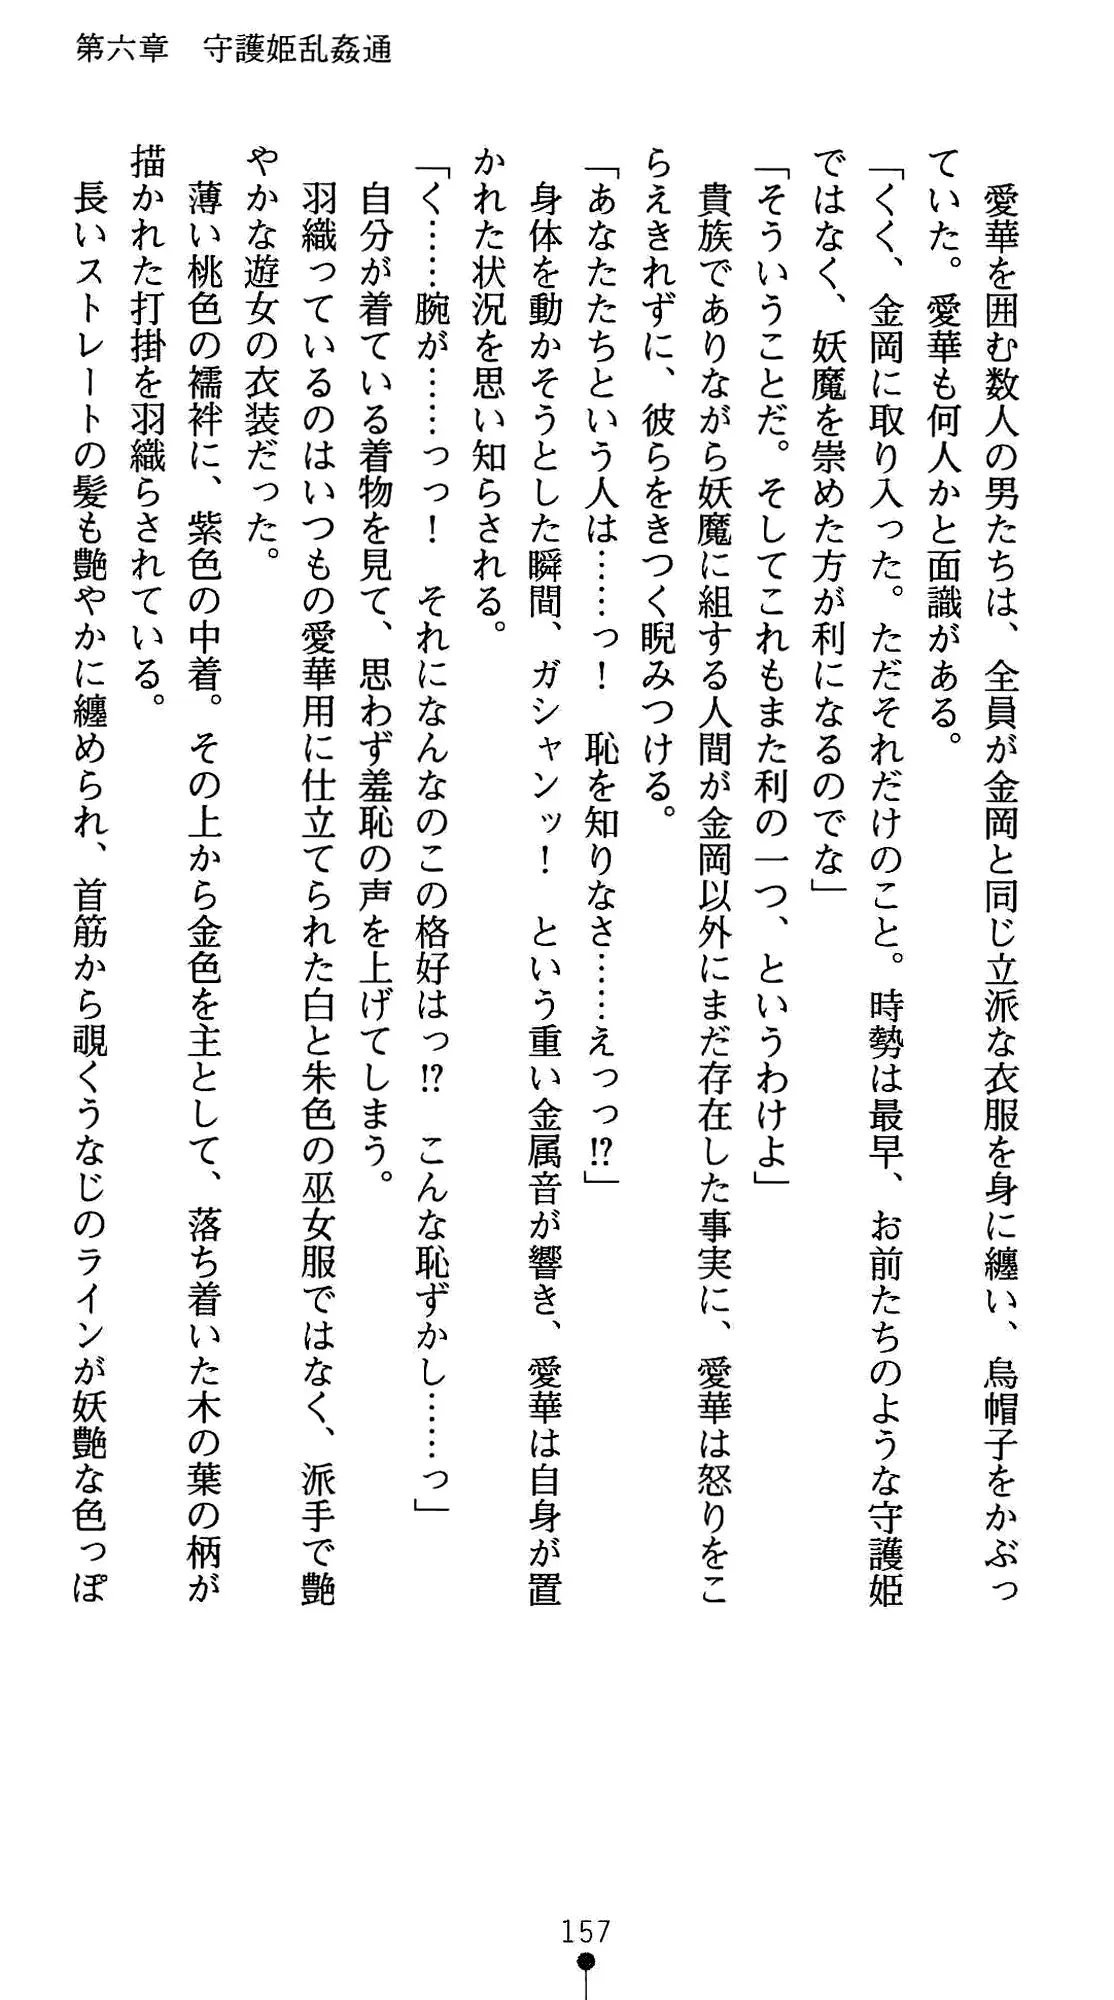 第六章　守護姫乱姦通
　愛華を囲む数人の男たちは、全員が金岡と同じ立派な衣服を身に纏い、烏帽子をかぶっ
ていた。愛華も何人かと面識がある。
「くく、金岡に取り入った。ただそれだけのこと。時勢は最早、お前たちのような守護姫
ではなく、妖魔を崇めた方が利になるのでな」
「そういうことだ。そしてこれもまた利の一つ、というわけよ」
　貴族でありながら妖魔に組する人間が金岡以外にまだ存在した事実に、愛華は怒りをこ
らえきれずに、彼らをきつく睨みつける。
「あなたたちという人は……っ！　恥を知りなさ……えっっ!?」
　身体を動かそうとした瞬間、ガシャンッ！　という重い金属音が響き、愛華は自身が置
かれた状況を思い知らされる。
「く……腕が……っっ！　それになんなのこの格好はっ!?　こんな恥ずかし……っ」
　自分が着ている着物を見て、思わず羞恥の声を上げてしまう。
　羽織っているのはいつもの愛華用に仕立てられた白と朱色の巫女服ではなく、派手で艶
やかな遊女の衣装だった。
　薄い桃色の襦袢に、紫色の中着。その上から金色を主として、落ち着いた木の葉の柄が
描かれた打掛を羽織らされている。
　長いストレートの髪も艶やかに纏められ、首筋から覗くうなじのラインが妖艶な色っぽ
157